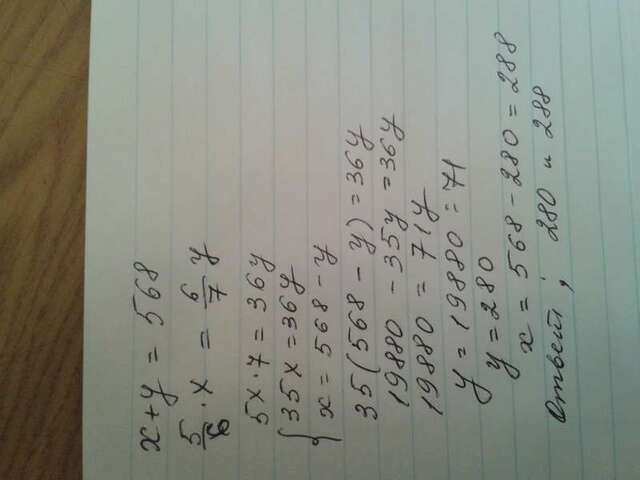 x+y = 568
5/6 · x = 6/7 y
5x·7 = 36y
{35x = 36y
x = 568 - y
35(568 - y) = 36y
19880 - 35y = 36y
19880 = 71y
y = 19880 : 71
y = 280
x = 568 - 280 = 288
Ответ; 280 и 288